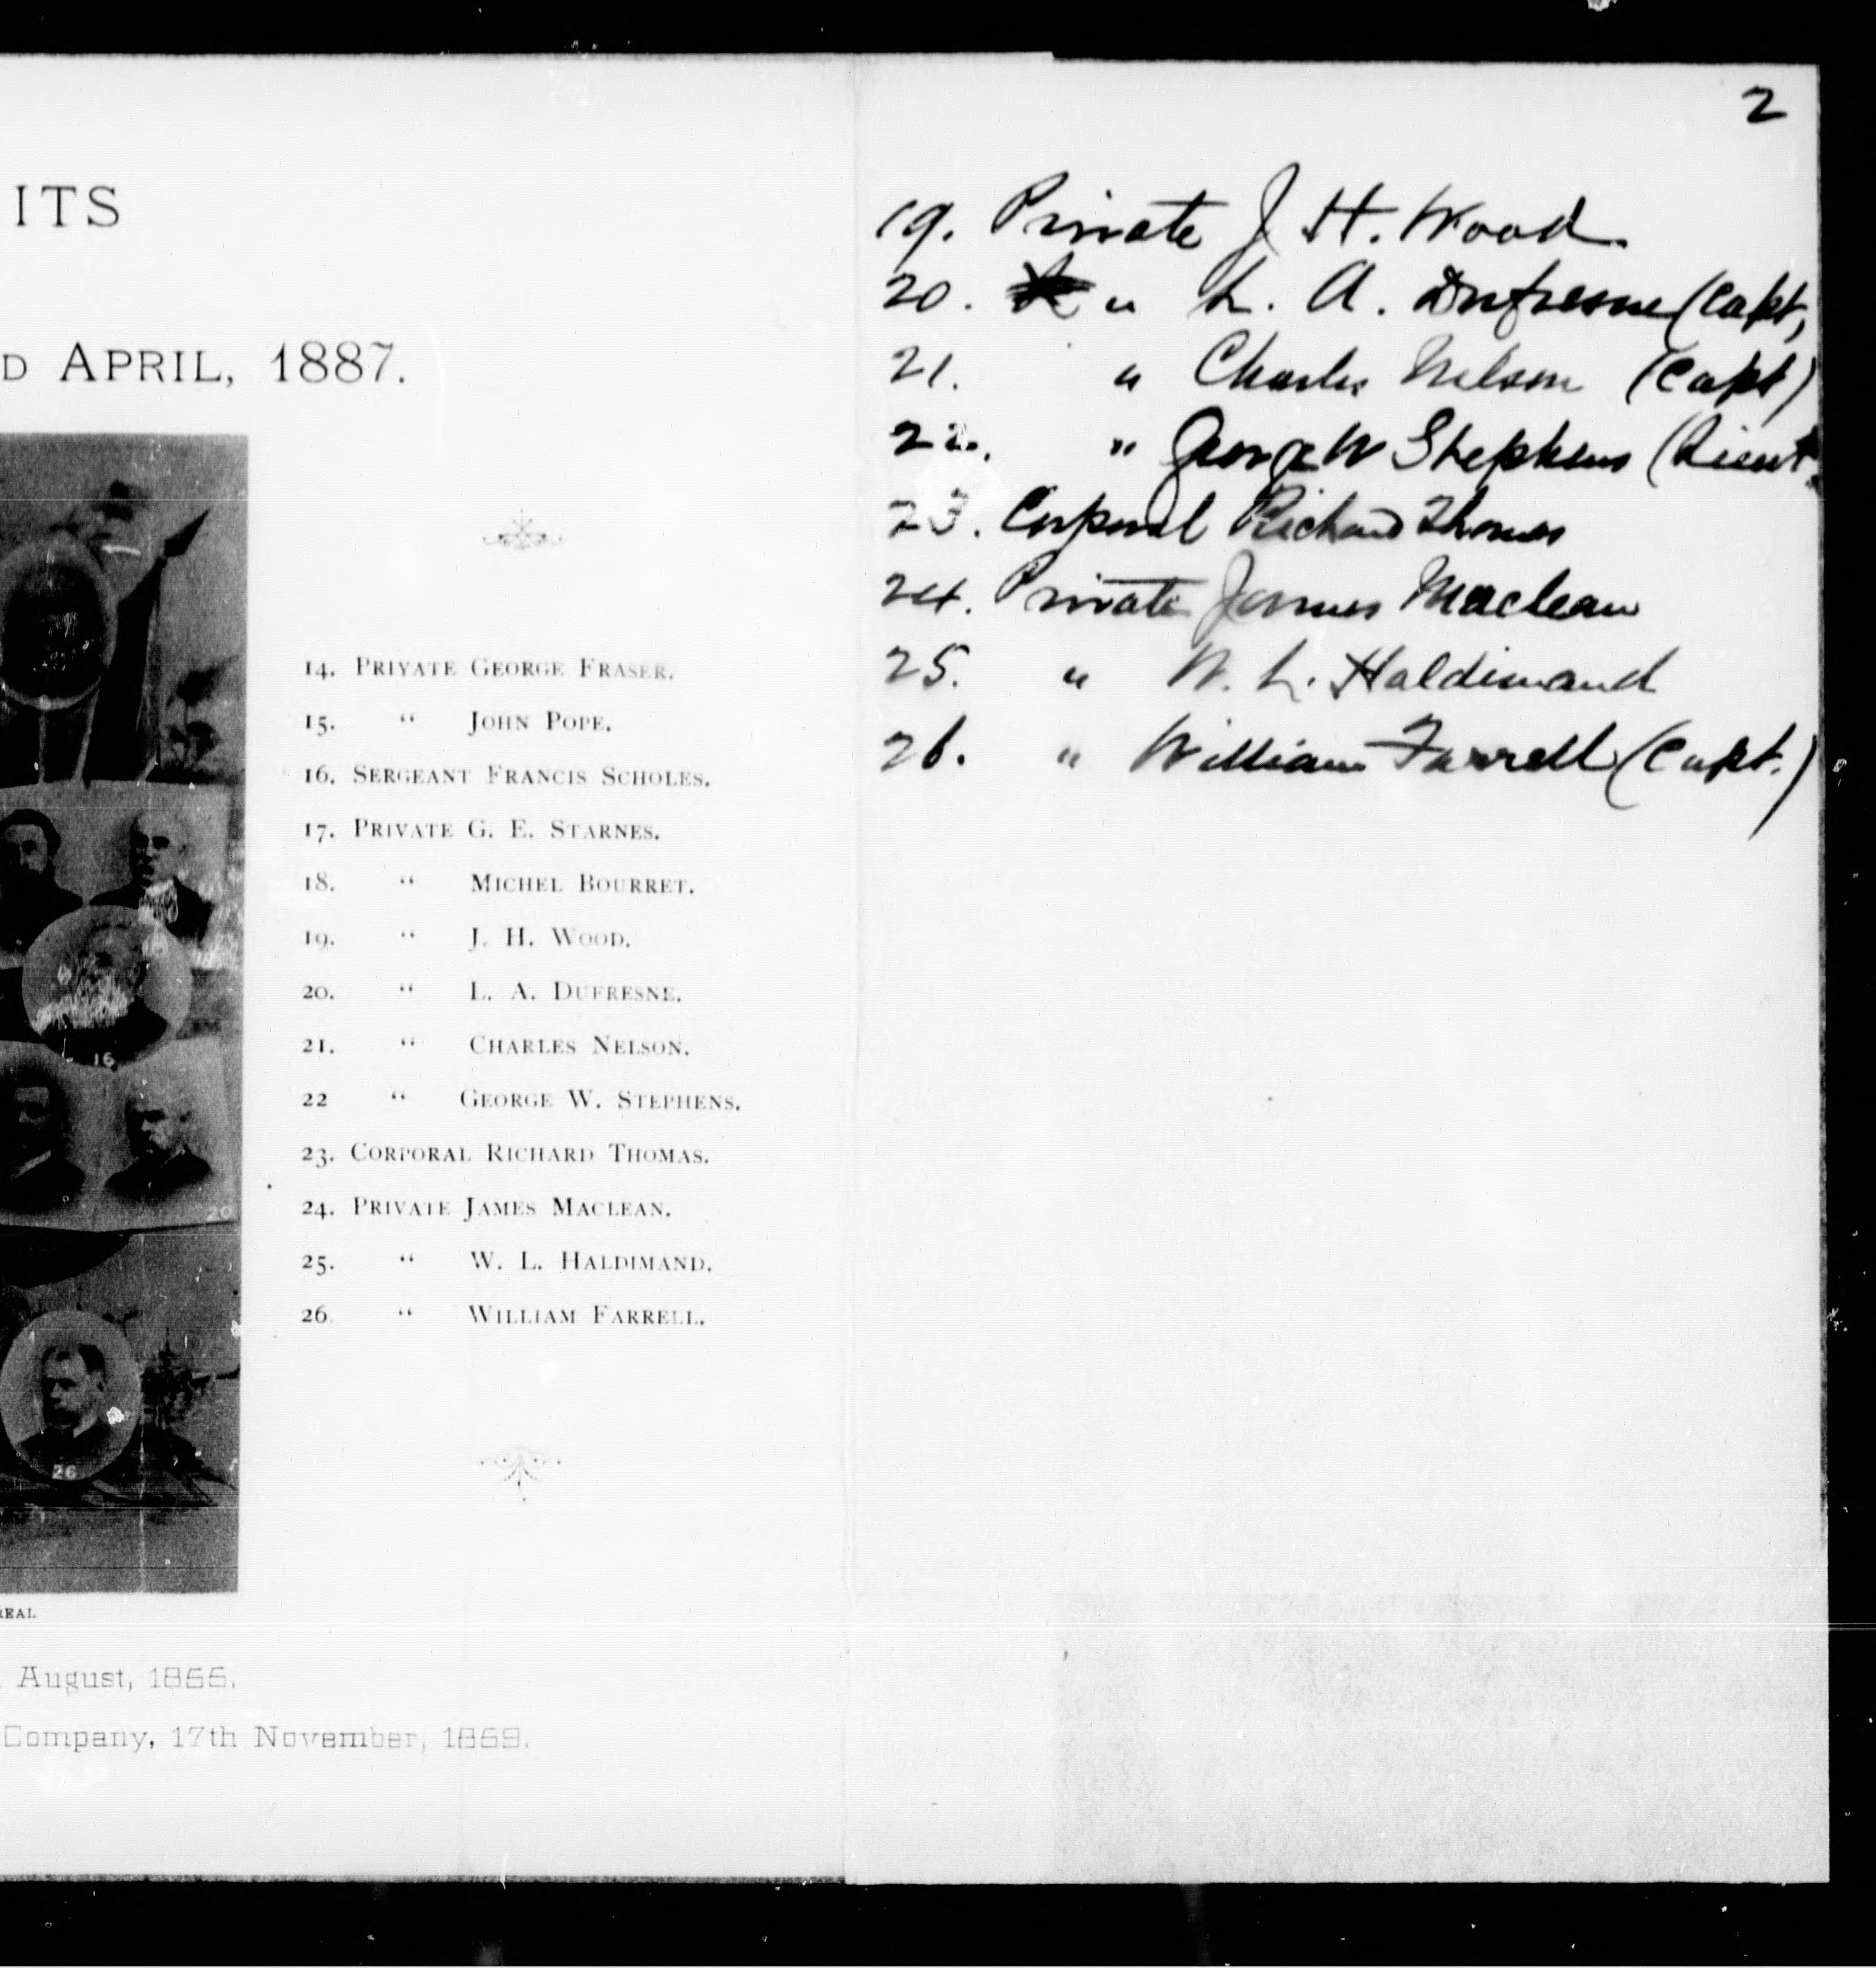 ITS
D APRIL, 1887.
14. PRIVATE GEORGE FRASER.
15. " JOHN POPE.
16. SERGEANT FRANCIS SCHOLES.
17. PRIVATE G. E. STARNES.
18. " MICHEL BOURRET.
19. " J. H. WOOD.
20. " L. A. DUFRESNE.
21. " CHARLES NELSON.
22 " GEORGE W. STEPHENS.
23. CORPORAL RICHARD THOMAS.
24. PRIVATE JAMES MACLEAN.
25. " W. L. HALDIMAND.
26. " WILLIAM FARRELL.
16
20
26
REAL
August, 1866.
Company, 17th November, 1869.
2
19. Private J H. Wood.
20. " L. A. Dufresne (Capt,
21. " Charles Nelson (Capt)
22. " George W Stephens (Lieut.
23. Corporal Richard Thomas
24. Private James Maclean
25. " W. L. Haldimand
26. " William Farrell (Capt.)